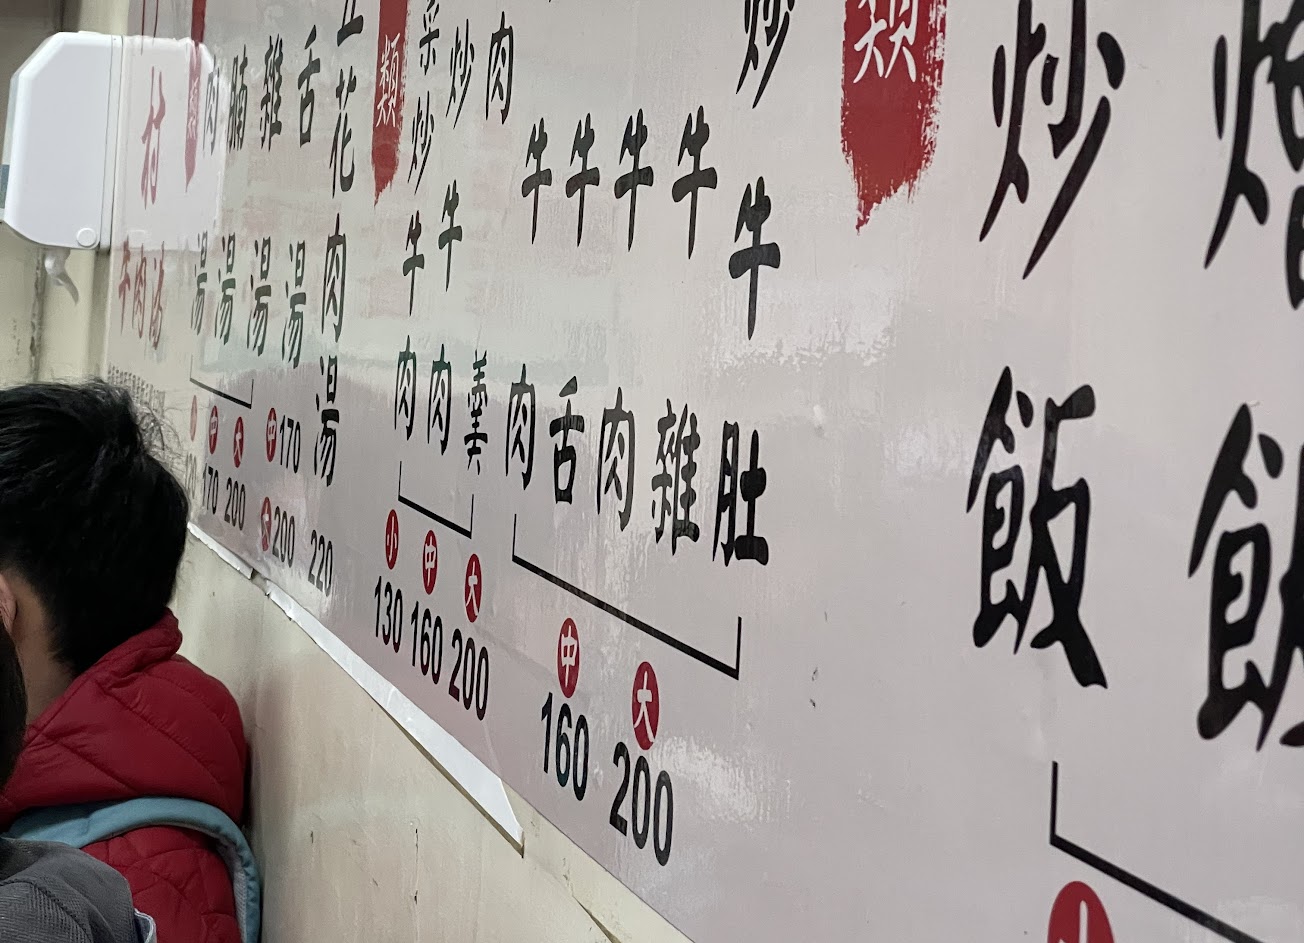 炒飯
小
類
炒牛肚
牛雜
牛肉
牛舌
牛肉
中 160
大 200
肉羹
炒牛肉
菜炒牛肉
小 130
中 160
大 200
類
五花肉湯
220
舌湯
中 170
大 200
雜湯
腩湯
肉湯
中 170
大 200
村
牛肉湯